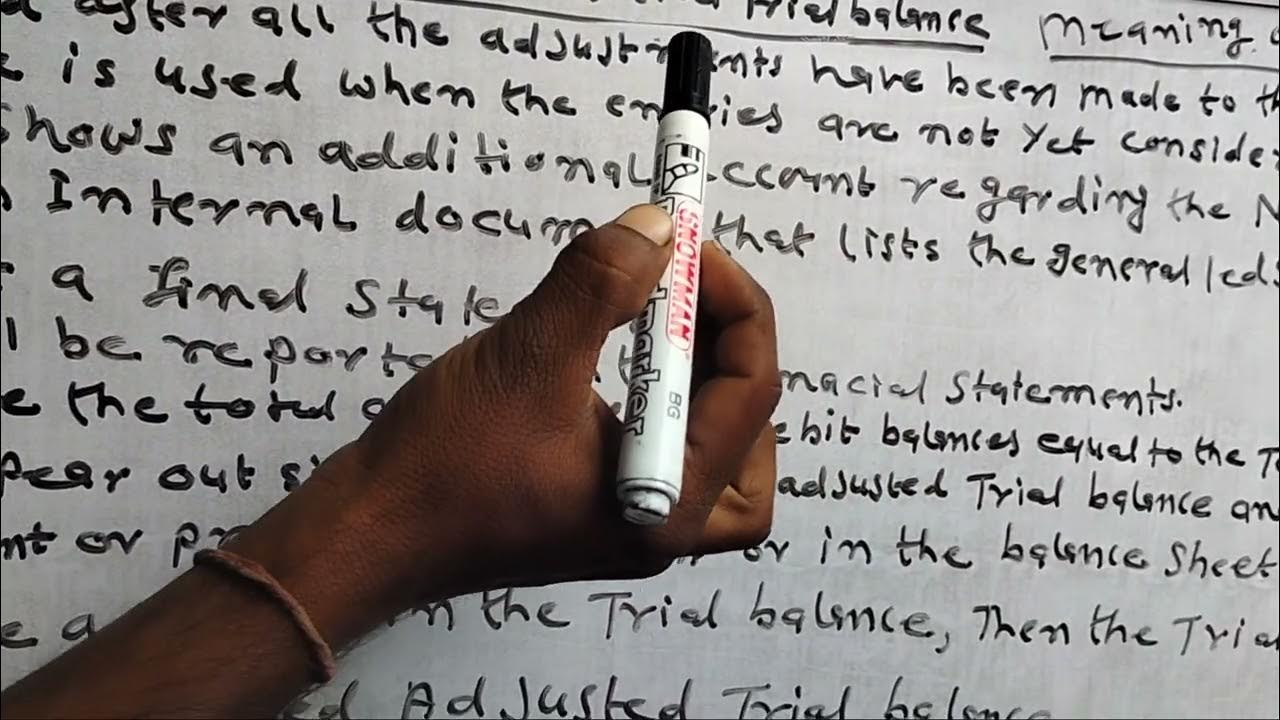 after all the adjustments have been made to th
is used when the entries are not yet conside
shows an additional account regarding the N
Internal docum that lists the general led
a final state
l be reporte nacial statements.
e the total ebit balances equal to the T
pear out si adjusted Trial balance an
nt or pr or in the balance sheet
e a m the Trial balance, Then the Tria
ed Adjusted Trial balance
Trial balance Meaning
SNOWMAN
marker
BG